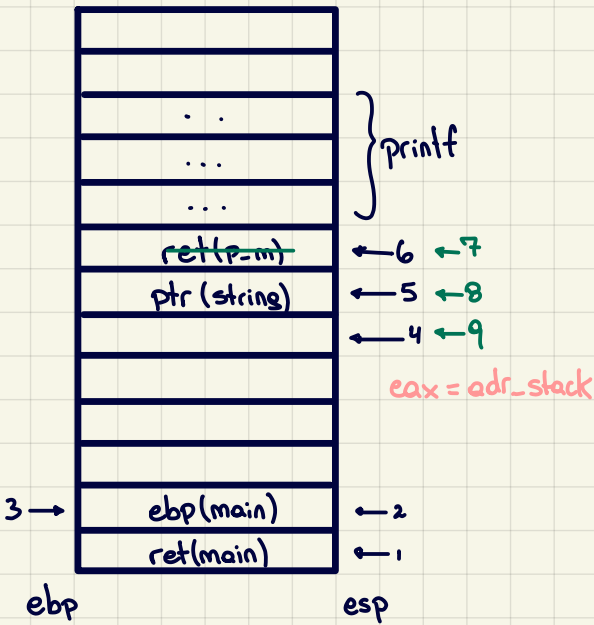 . .
...
printf
...
ret(p_m) ← 6 ← 7
ptr (string) ← 5 ← 8
← 4 ← 9
eax = adr_stack
3 → ebp(main) ← 2
ret(main) ← 1
ebp esp